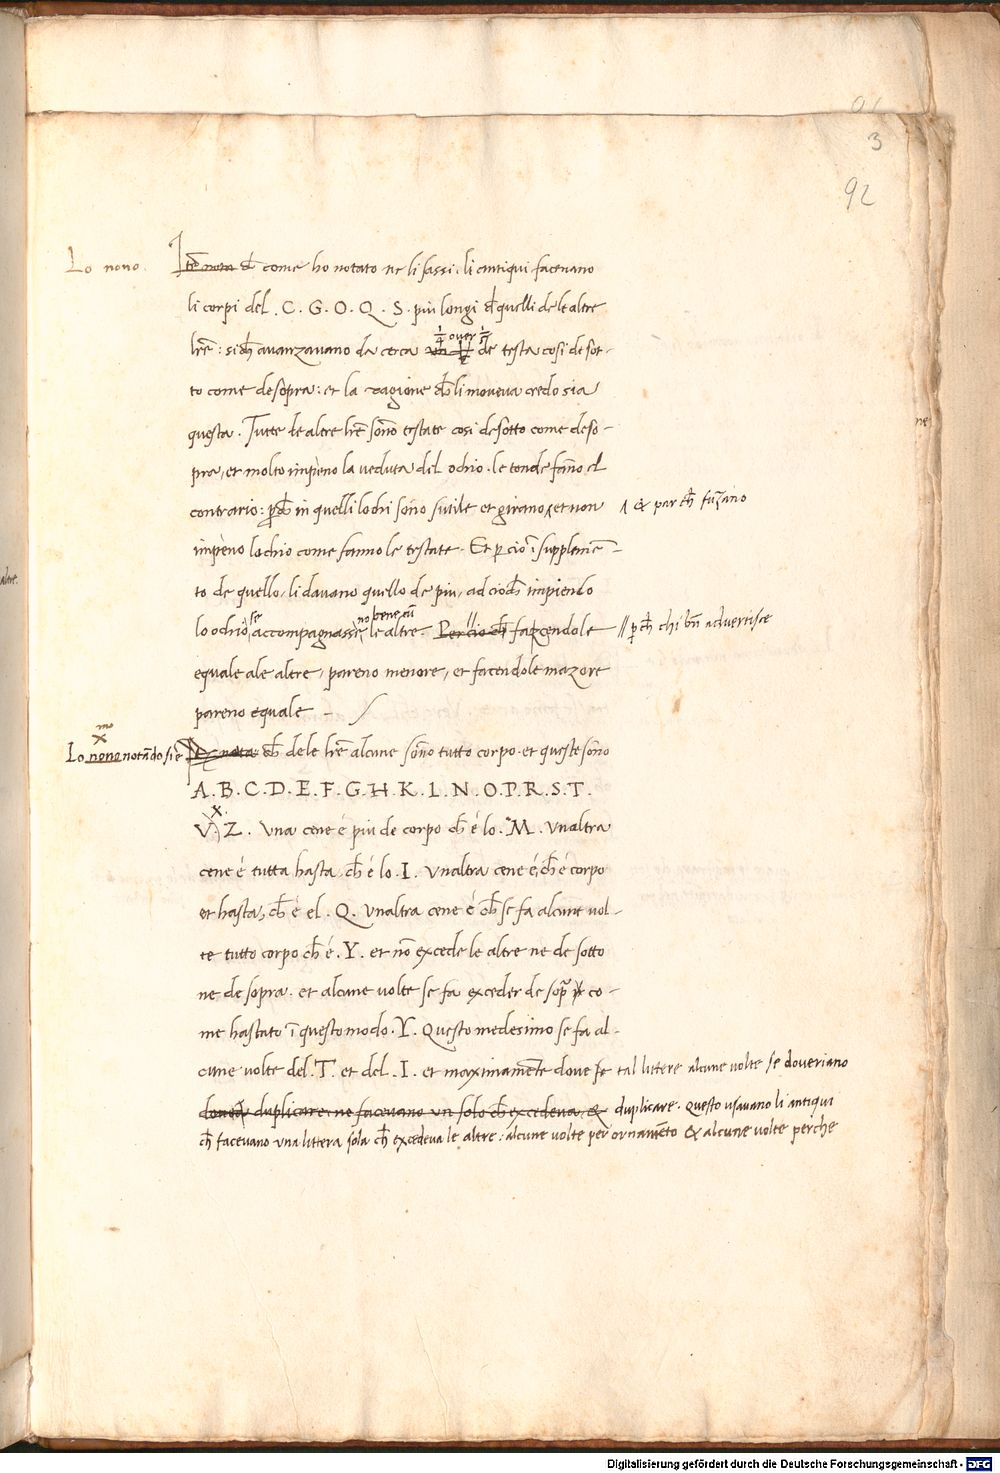 3
92
Lo nono. Ite nota ch come ho notato ne li sassi. li antiqui facevano
li corpi del . C. G. O. Q. S. piu longi d quelli de le altre
lre : sich avanzavano da cerca un 1/4 over 1/5 de testa cosi de sot-
to come de sopra : et la ragione ch li moveva credo sia
questa. Tutte le altre lre sono testate cosi de sotto come de so-
pra, et molto impeno la veduta dil ochio. le tonde fano el
contrario : pch in quelli lochi sono sutile et girano ∧ et non ∧ & par ch fuzano
impeno lochio come fanno le testate. Et per cio i supplemē-
to de quello, li davano quello de piu, ad cioch impiendo
lo ochio, se accompagnasse no bene cu le altre. Percio ch facendole // pch chi bn advertisce
equale ale altre, pareno menore, et facendole mazore
pareno equale –
Lo nono x mo notando si e Ite nota ch dele lre alcune sono tutto corpo. et queste sono
A. B. C. D. E. F. G. H. K. L. N. O. P. R. S. T.
V X. Z. Una cene é piu de corpo ch é lo. M. Unaltra
cene é tutta hasta, ch é lo. I. Unaltra cene é, ch é corpo
et hasta, ch é el. Q. Unaltra cene é ch se fa alcune vol-
te tutto corpo ch é. Y. et nō excede le altre ne de sotto
ne de sopra. et alcune volte se fa exceder de sopra co-
me hastato ī questo modo. Y. Questo medesimo se fa al-
cune volte del. T. et del. I. et maximamente dove tal littere alcune volte se doveriano
duplicare ne facevano un solo ch excedeva, & duplicare. questo usavano li antiqui
ch facevano una littera sola ch excedeva le altre : alcune volte per ornamēto & alcune volte perche
altre.
ne
Digitalisierung gefördert durch die Deutsche Forschungsgemeinschaft - DFG